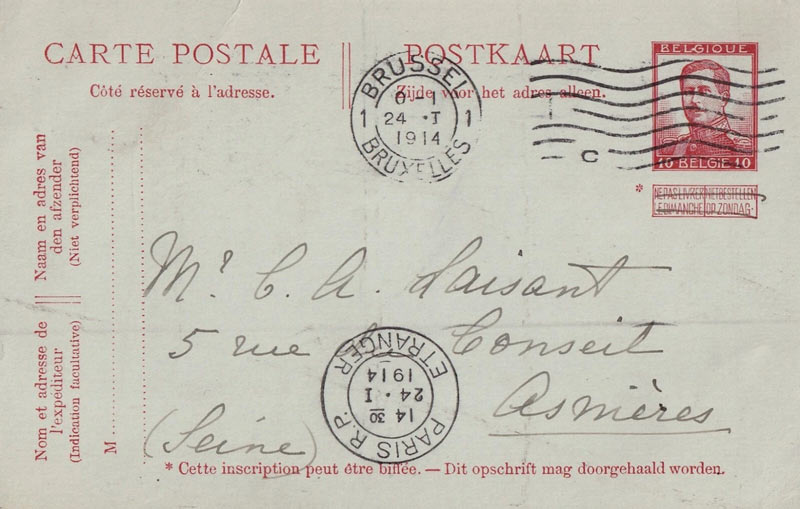 CARTE POSTALE
Côté réservé à l'adresse.
POSTKAART
Zijde voor het adres alleen.
BRUSSEL
0-1
1 24 · I 1
1914
BRUXELLES
C
BELGIQUE
10 BELGIË 10
* NE PAS LIVRER NIET BESTELLEN
LE DIMANCHE OP ZONDAG
Naam en adres van
den afzender
(Niet verplichtend)
Nom et adresse de
l'expéditeur
(Indication facultative)
M
Mr C. A. Laisant
5 rue du Conseil
Asnières
(Seine)
PARIS R.P.
14 30
24 · I
1914
ETRANGER
* Cette inscription peut être biffée. — Dit opschrift mag doorgehaald worden.